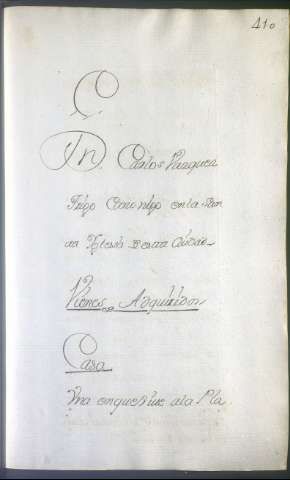 410
C
Dn Carlos Vazquez
Trigo Canonigo en la San
ta Iglesia de esta Ciudad
Vienes Adquiridos
Casa
Una en que Vive a la Pla